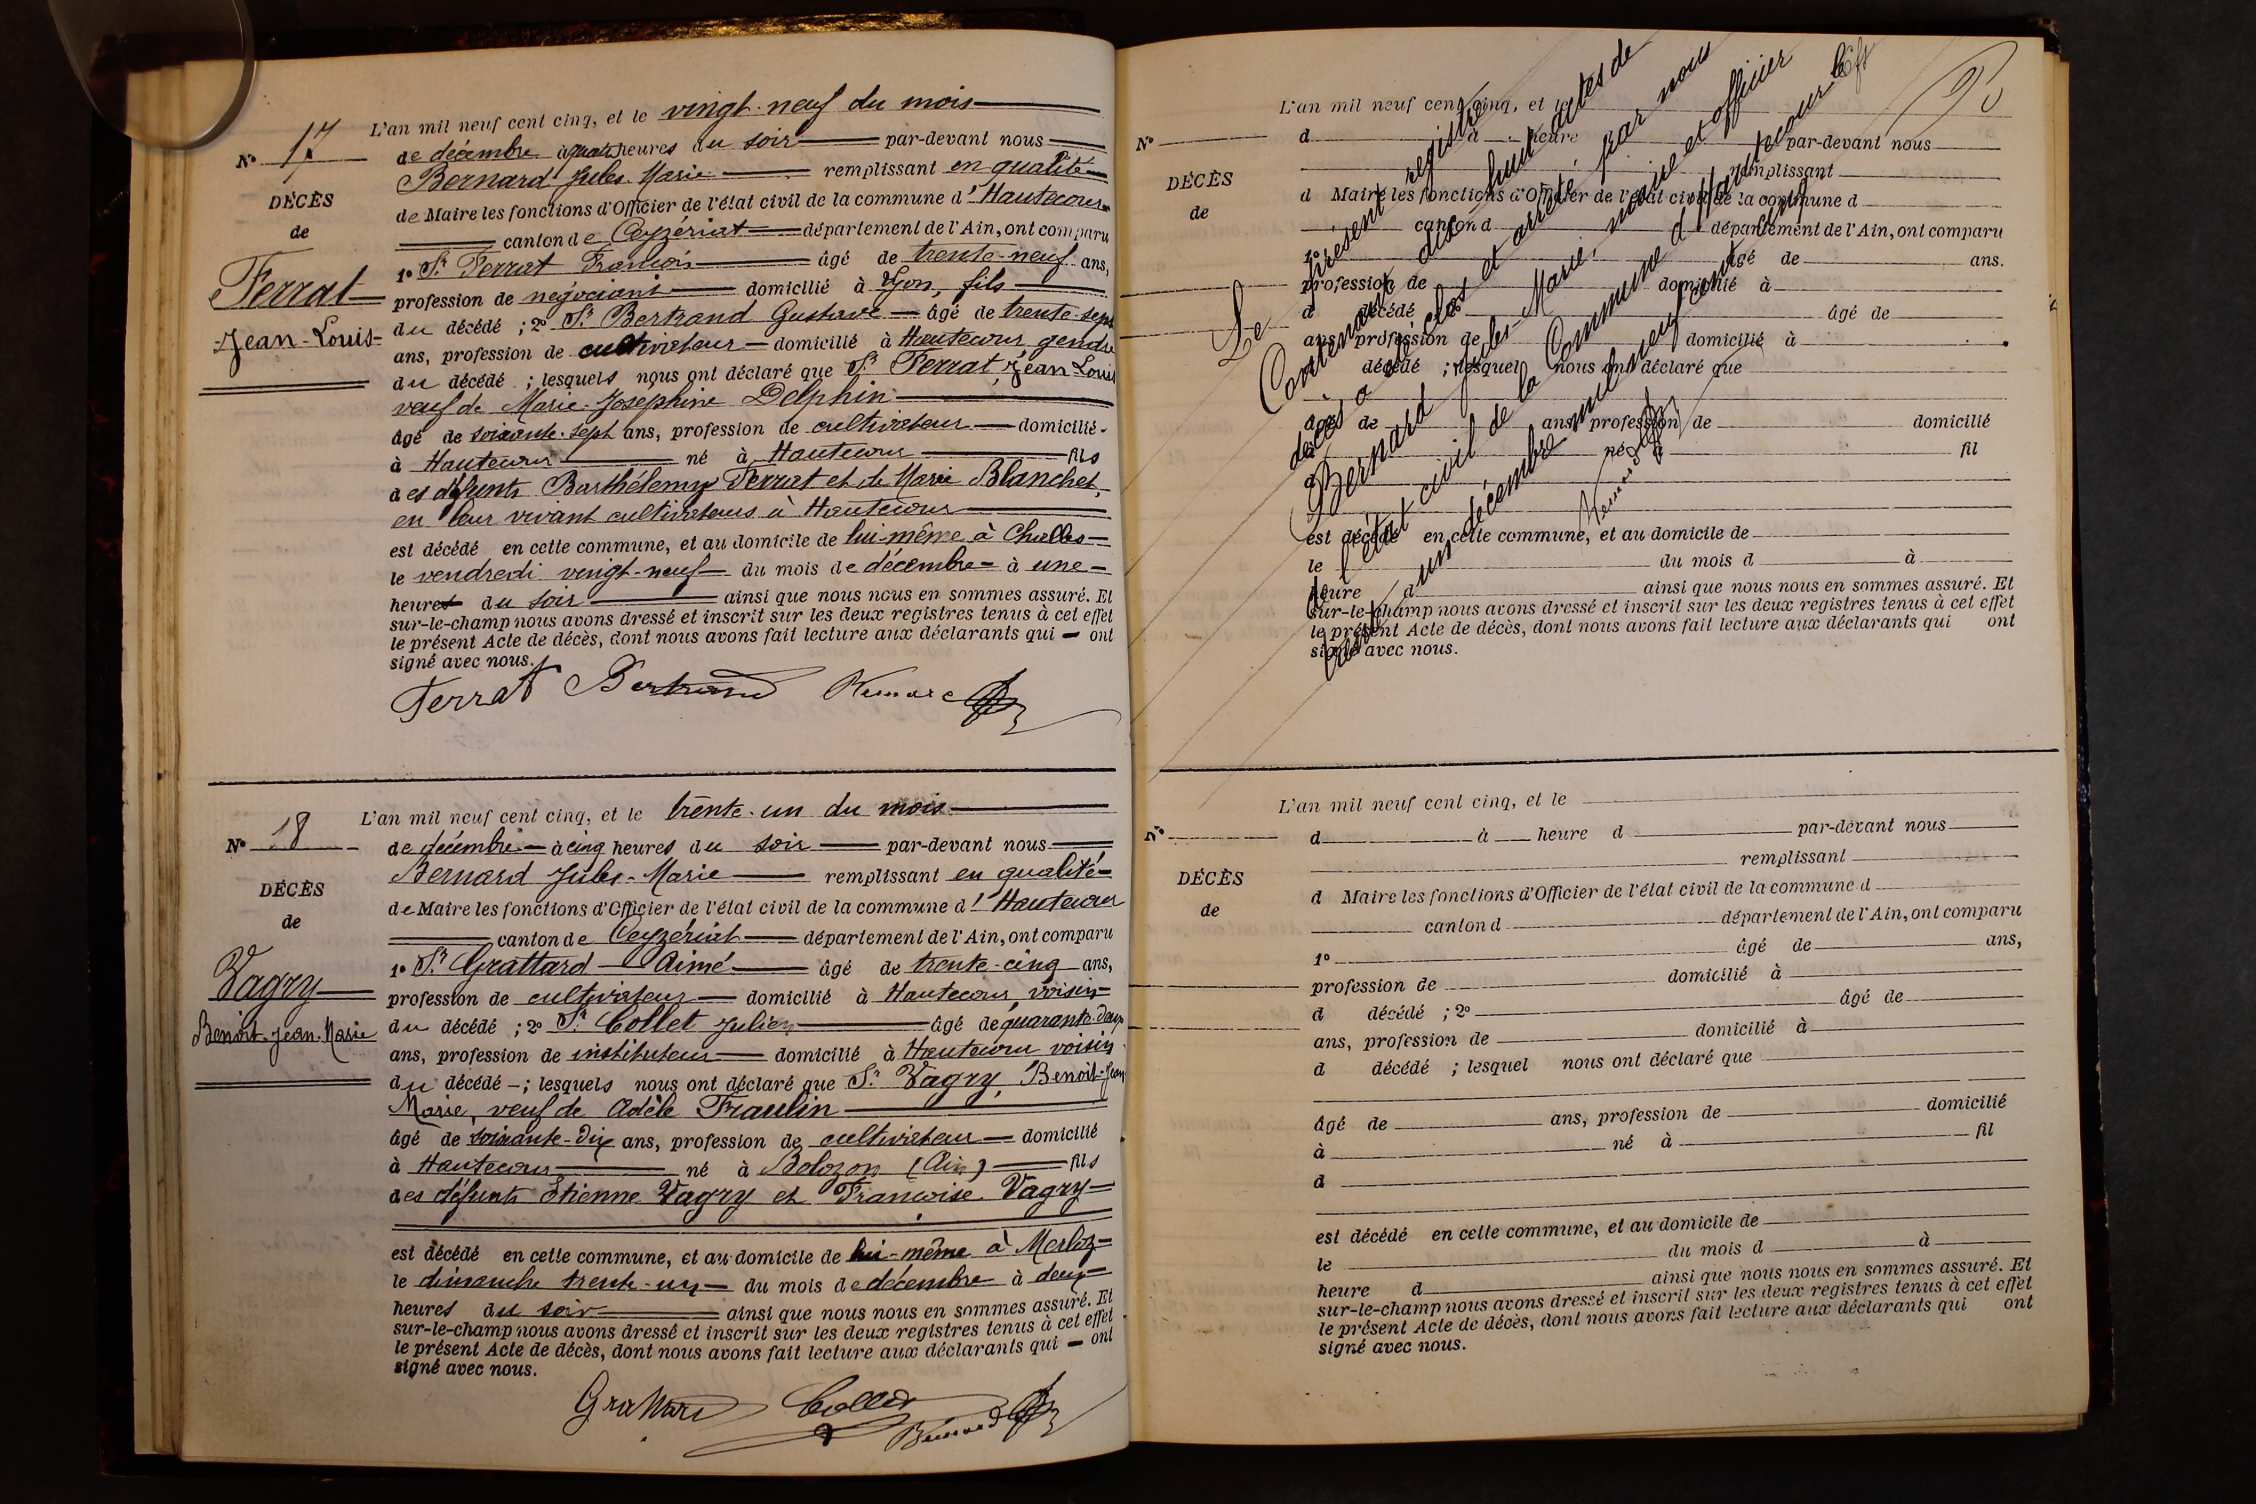 L'an mil neuf cent cinq, et le vingt-neuf du mois
N° 17
de décembre à quatre heures du soir par-devant nous
Bernard Jules-Marie remplissant en qualité
DÉCÈS
de Maire les fonctions d'Officier de l'état civil de la commune d'Hautecour
de
canton de Ceyzériat département de l'Ain, ont comparu
1° Sr Ferrat François âgé de trente-neuf ans,
Ferrat
profession de négociant domicilié à Lyon, fils
Jean-Louis
du décédé ; 2° Sr Bertrand Gustave âgé de trente-sept
ans, profession de cultivateur domicilié à Hautecour gendre
du décédé ; lesquels nous ont déclaré que Sr Ferrat, Jean-Louis
veuf de Marie-Josephine Delphin
âgé de soixante-sept ans, profession de cultivateur domicilié
à Hautecour né à Hautecour fils
des défunts Barthélemy Ferrat et de Marie Blanchet,
en leur vivant cultivateurs à Hautecour
est décédé en cette commune, et au domicile de lui-même à Challes
le vendredi vingt-neuf du mois de décembre à une
heures du soir ainsi que nous nous en sommes assuré. Et
sur-le-champ nous avons dressé et inscrit sur les deux registres tenus à cet effet
le présent Acte de décès, dont nous avons fait lecture aux déclarants qui ont
signé avec nous.
Ferrat Bertrand Bernard
L'an mil neuf cent cinq, et le trente-un du mois
N° 18
de décembre à cinq heures du soir par-devant nous
Bernard Jules-Marie remplissant en qualité
DÉCÈS
de Maire les fonctions d'Officier de l'état civil de la commune d'Hautecour
de
canton de Ceyzériat département de l'Ain, ont comparu
1° Sr Grattard Aimé âgé de trente-cinq ans,
Vagry
profession de cultivateur domicilié à Hautecour, voisin
Benoit-Jean-Marie
du décédé ; 2° Sr Collet Julien âgé de quarante-deux
ans, profession de instituteur domicilié à Hautecour voisin
du décédé ; lesquels nous ont déclaré que Sr Vagry, Benoit-Jean
Marie, veuf de Adèle Fraulin
âgé de soixante-dix ans, profession de cultivateur domicilié
à Hautecour né à Bolozon (Ain) fils
des défunts Etienne Vagry et Françoise Vagry
est décédé en cette commune, et au domicile de lui-même à Merloz
le dimanche trente-un du mois de décembre à deux
heures du soir ainsi que nous nous en sommes assuré. Et
sur-le-champ nous avons dressé et inscrit sur les deux registres tenus à cet effet
le présent Acte de décès, dont nous avons fait lecture aux déclarants qui ont
signé avec nous.
Grattard Collet Bernard
L'an mil neuf cent cinq, et le
N°
d à heure par-devant nous
remplissant
DÉCÈS
d Maire les fonctions d'Officier de l'état civil de la commune d
de
canton d département de l'Ain, ont comparu
1° âgé de ans.
profession de domicilié à
d décédé âgé de
ans, profession de domicilié à
décédé ; lesquel nous ont déclaré que
âgé de ans, profession de domicilié
né à fil
d
est décédé en cette commune, et au domicile de
le du mois d à
heure d ainsi que nous nous en sommes assuré. Et
sur-le-champ nous avons dressé et inscrit sur les deux registres tenus à cet effet
le présent Acte de décès, dont nous avons fait lecture aux déclarants qui ont
signé avec nous.
Le présent registre
Contenant dix huit actes de
décès a été clos et arrêté par nous
Bernard Jules-Marie, maire et officier
de l'état civil de la Commune d'Hautecour le
trente un décembre mil neuf cent cinq
Bernard
L'an mil neuf cent cinq, et le
N°
d à heure d par-devant nous
remplissant
DÉCÈS
d Maire les fonctions d'Officier de l'état civil de la commune d
de
canton d département de l'Ain, ont comparu
1° âgé de ans,
profession de domicilié à
d décédé ; 2° âgé de
ans, profession de domicilié à
d décédé ; lesquel nous ont déclaré que
âgé de ans, profession de domicilié
à né à fil
d
est décédé en cette commune, et au domicile de
le du mois d à
heure d ainsi que nous nous en sommes assuré. Et
sur-le-champ nous avons dressé et inscrit sur les deux registres tenus à cet effet
le présent Acte de décès, dont nous avons fait lecture aux déclarants qui ont
signé avec nous.